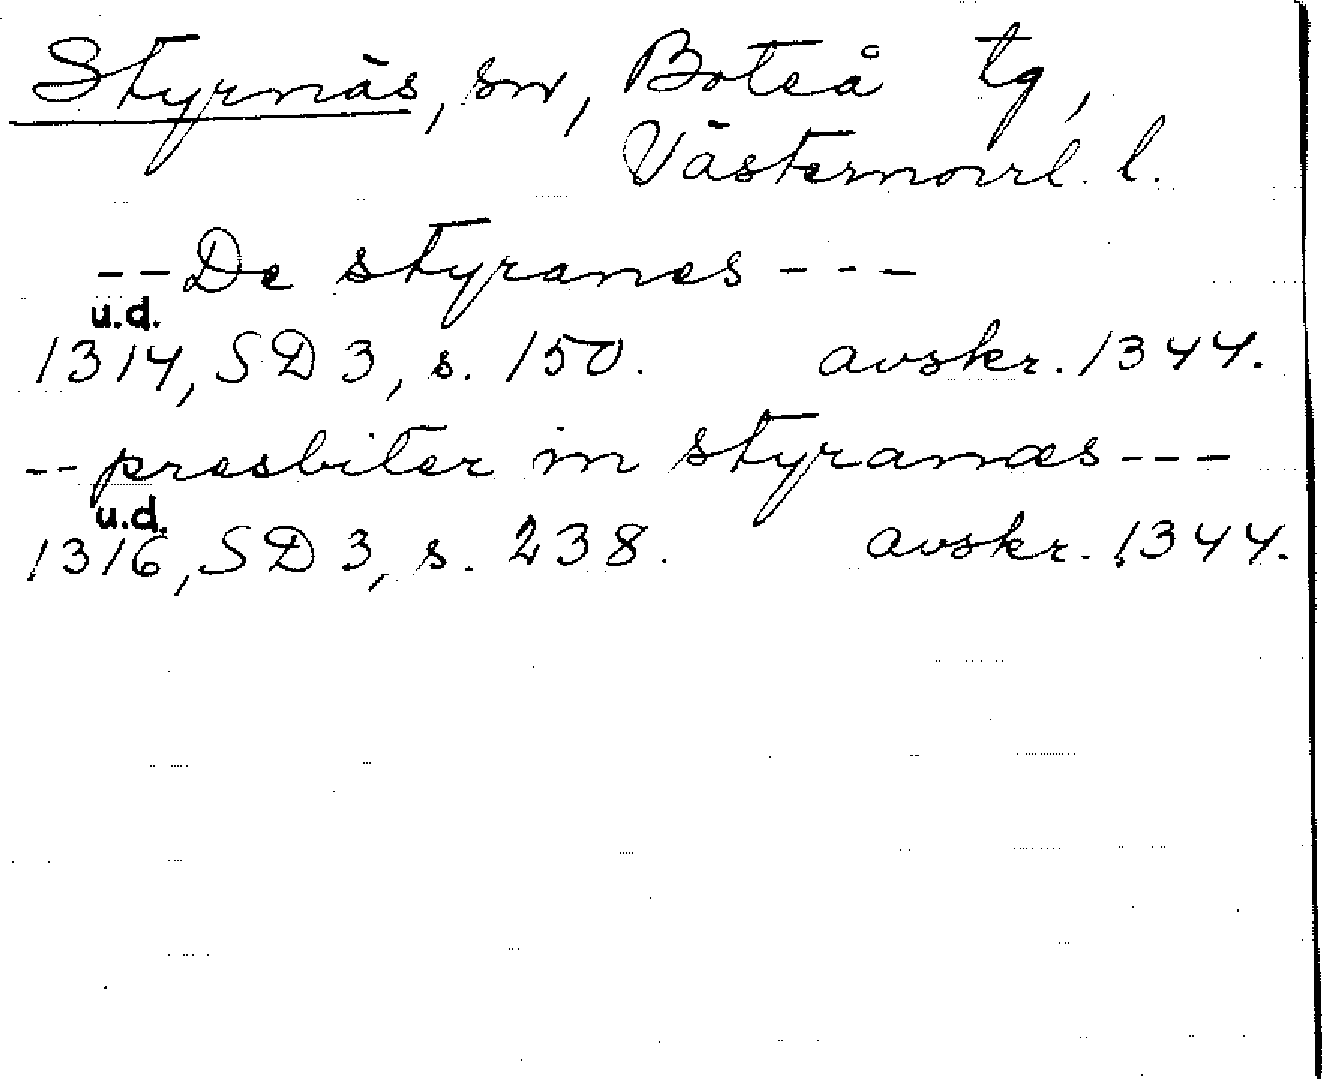 Styrnäs, sn, Boteå tg,
Västernorrl. l.
-- De styranes ---
u.d.
1314, SD 3, s. 150. avskr. 1344.
-- presbiter in styranæs ---
u.d.
1316, SD 3, s. 238. avskr. 1344.